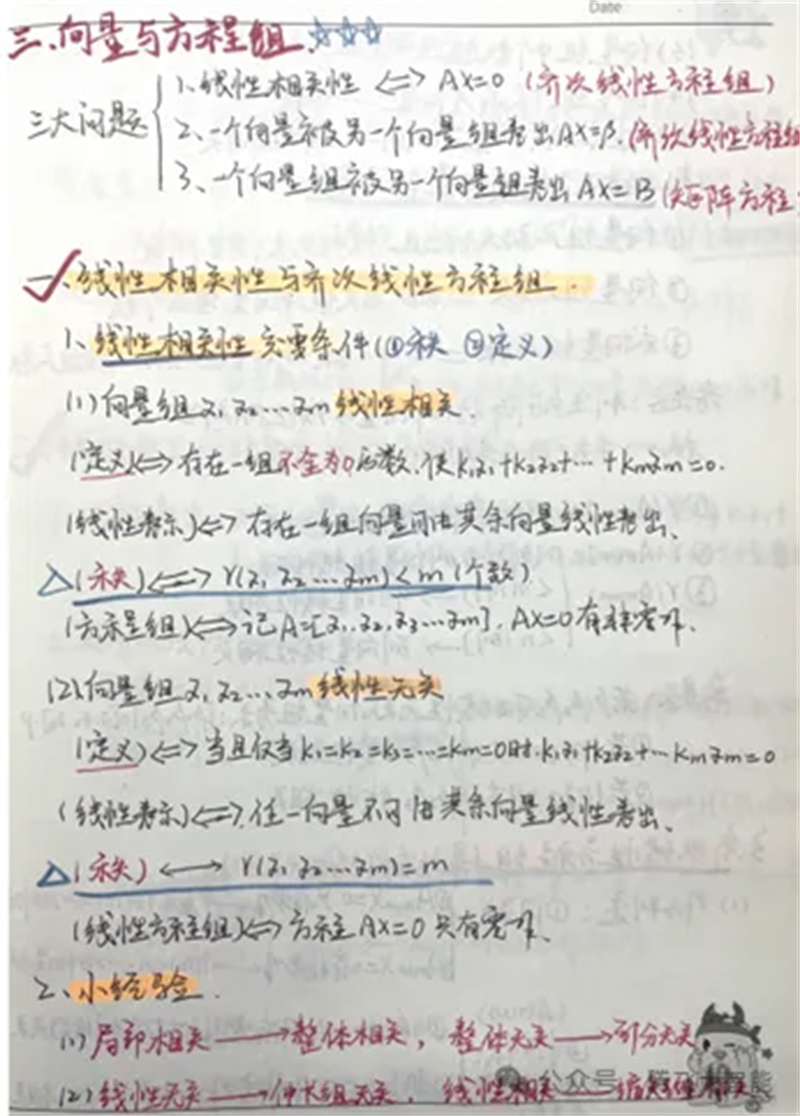 Date
三、向量与方程组 ☆☆☆
三大问题
1、线性相关性 <=> AX=0 (齐次线性方程组)
2、一个向量被另一个向量组表出 AX=β. (齐次线性方程组
3、一个向量组被另一个向量组表出 AX=B (矩阵方程
一、线性相关性与齐次线性方程组.
1、线性相关性充要条件(①秩 ②定义)
(1) 向量组α₁ α₂…αm线性相关.
(定义)<=> 存在一组不全为0的数,使k₁α₁+k₂α₂+…+kmαm=0.
(线性表示)<=> 存在一组向量可由其余向量线性表出、
△(秩)<=> r(α₁ α₂…αm)<m (个数)
(方程组)<=>记A=[α₁,α₂,α₃…αm], AX=0有非零解.
(2)、向量组α₁ α₂…,αm线性无关
(定义)<=>当且仅当k₁=k₂=k₃=…=km=0时.k₁α₁+k₂α₂+…kmαm=0
(线性表示)<=>.任一向量不可由其余向量线性表出、
△(秩) <—> r(α₁ α₂…αm)=m
(线性方程组)<=>方程AX=0只有零解、
2、小经验.
(1) 局部相关——>整体相关, 整体无关——>部分无关
(2) 线性无关——>伸长组无关, 线性相关——>缩短组相关
公众号